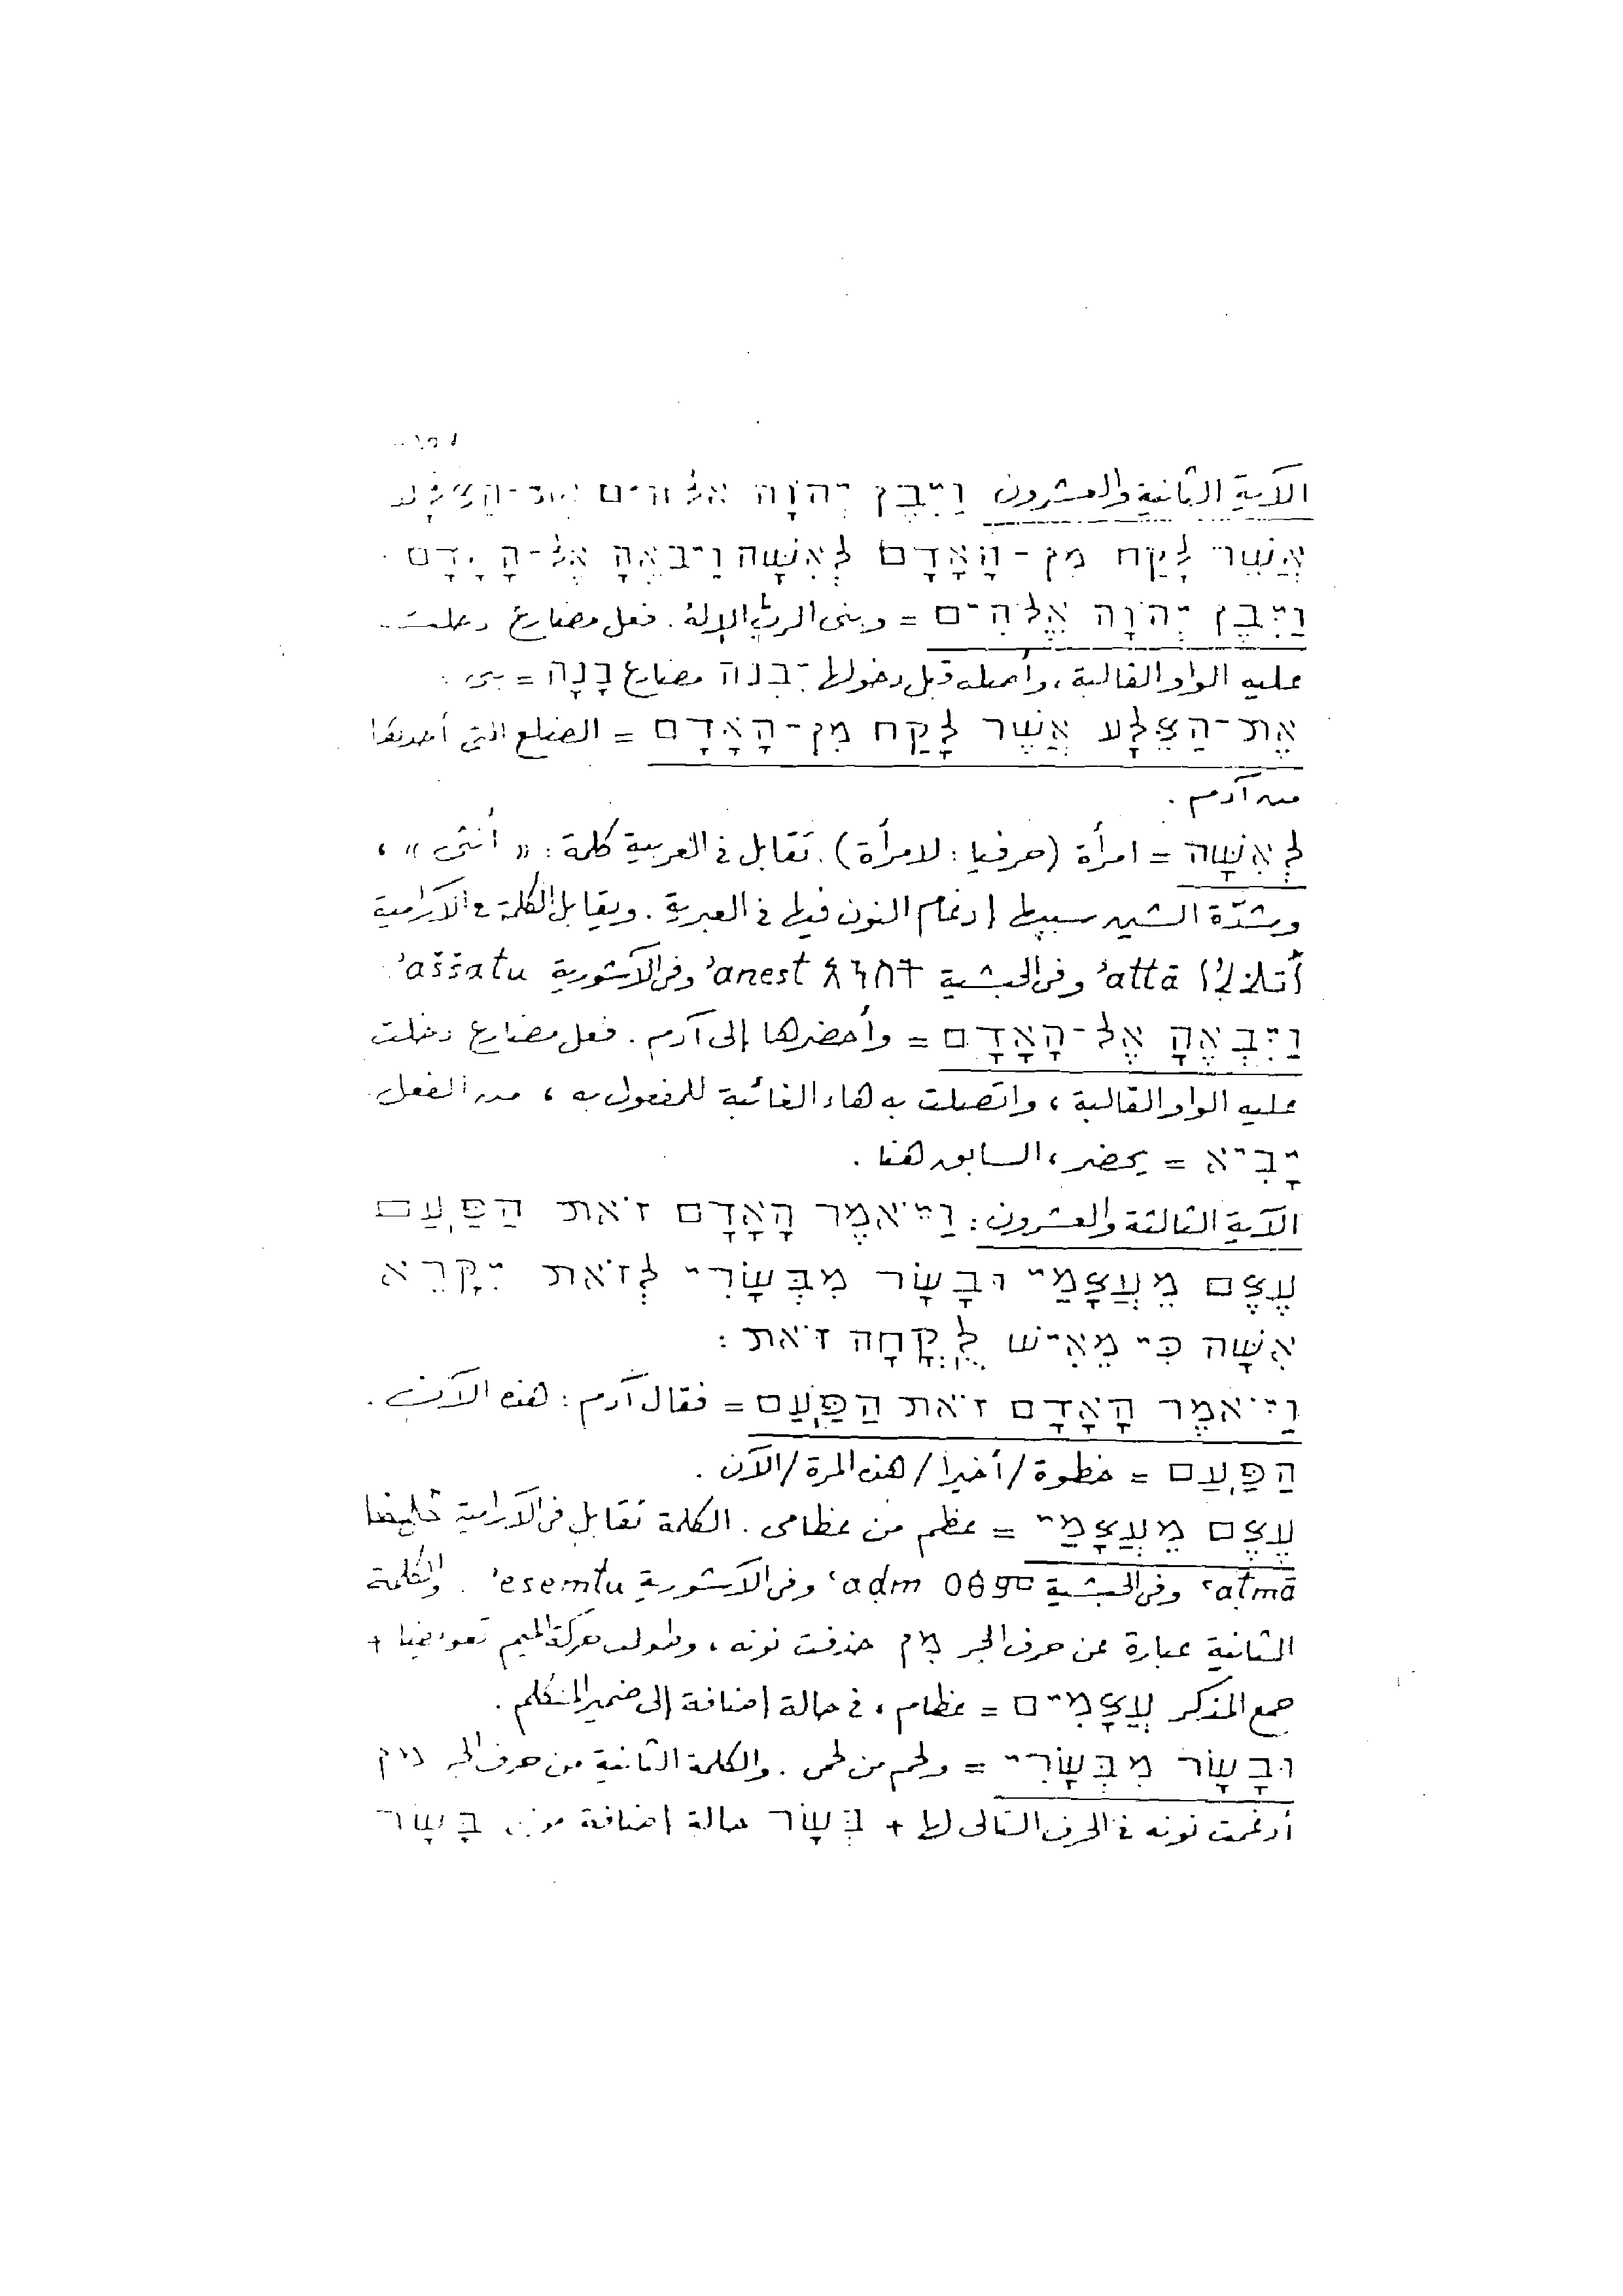 الآية الثانية والعشرون וַיִּבֶן יְהוָֹה אֱלֹהִים אֶת-הַצֵּלָע
אֲשֶׁר לָקַח מִן-הָאָדָם לְאִשָּׁה וַיְבִאֶהָ אֶל-הָאָדָם .
וַיִּבֶן יְהוָֹה אֱלֹהִים = وبنى الرب الإله . فعل مضارع دخلت
عليه الواو القالبة ، وأصله قبل دخولها יִבְנֶה مضارع בָּנָה = بنى .
אֶת-הַצֵּלָע אֲשֶׁר לָקַח מִן-הָאָדָם = الضلع التى أخذها
من آدم .
לְאִשָּׁה = امرأة (حرفيا : لامرأة) . تقابل فى العربية كلمة : « أنثى » ،
وشدّة الشين سببها إدغام النون فيها فى العبرية . ويقابل الكلمة فى الآرامية
ʾattā وفى الحبشية አንስት ʾanest وفى الآشورية ʾaššatu
וַיְבִאֶהָ אֶל-הָאָדָם = وأحضرها إلى آدم . فعل مضارع دخلت
عليه الواو القالبة ، واتصلت به هاء الغائبة للمفعول به ، من الفعل
יָבִיא = يحضر ، السابق هنا .
الآية الثالثة والعشرون : וַיֹּאמֶר הָאָדָם זֹאת הַפַּעַם
עֶצֶם מֵעֲצָמַי וּבָשָׂר מִבְּשָׂרִי לְזֹאת יִקָּרֵא
אִשָּׁה כִּי מֵאִישׁ לֻקֳחָה זֹאת :
וַיֹּאמֶר הָאָדָם זֹאת הַפַּעַם = فقال آدم : هذه الآن .
הַפַּעַם = خطوة / أخيرا / هذه المرة / الآن .
עֶצֶם מֵעֲצָמַי = عظم من عظامى . الكلمة تقابل فى الآرامية
ʿaṭmā وفى الحبشية ዐፅም ʿaḍm وفى الآشورية ʾesemtu . والكلمة
الثانية عبارة عن حرف الجر מִן حذفت نونه ، وطولت حركة الميم تعويضا +
جمع المذكر עֲצָמִים = عظام ، فى حالة إضافة إلى ضمير المتكلم .
וּבָשָׂר מִבְּשָׂרִי = ولحم من لحمى . والكلمة الثانية من حرف الجر מִן
أدغمت نونه فى الحرف التالى لها + בְּשָׂר حالة إضافة من בָּשָׂר